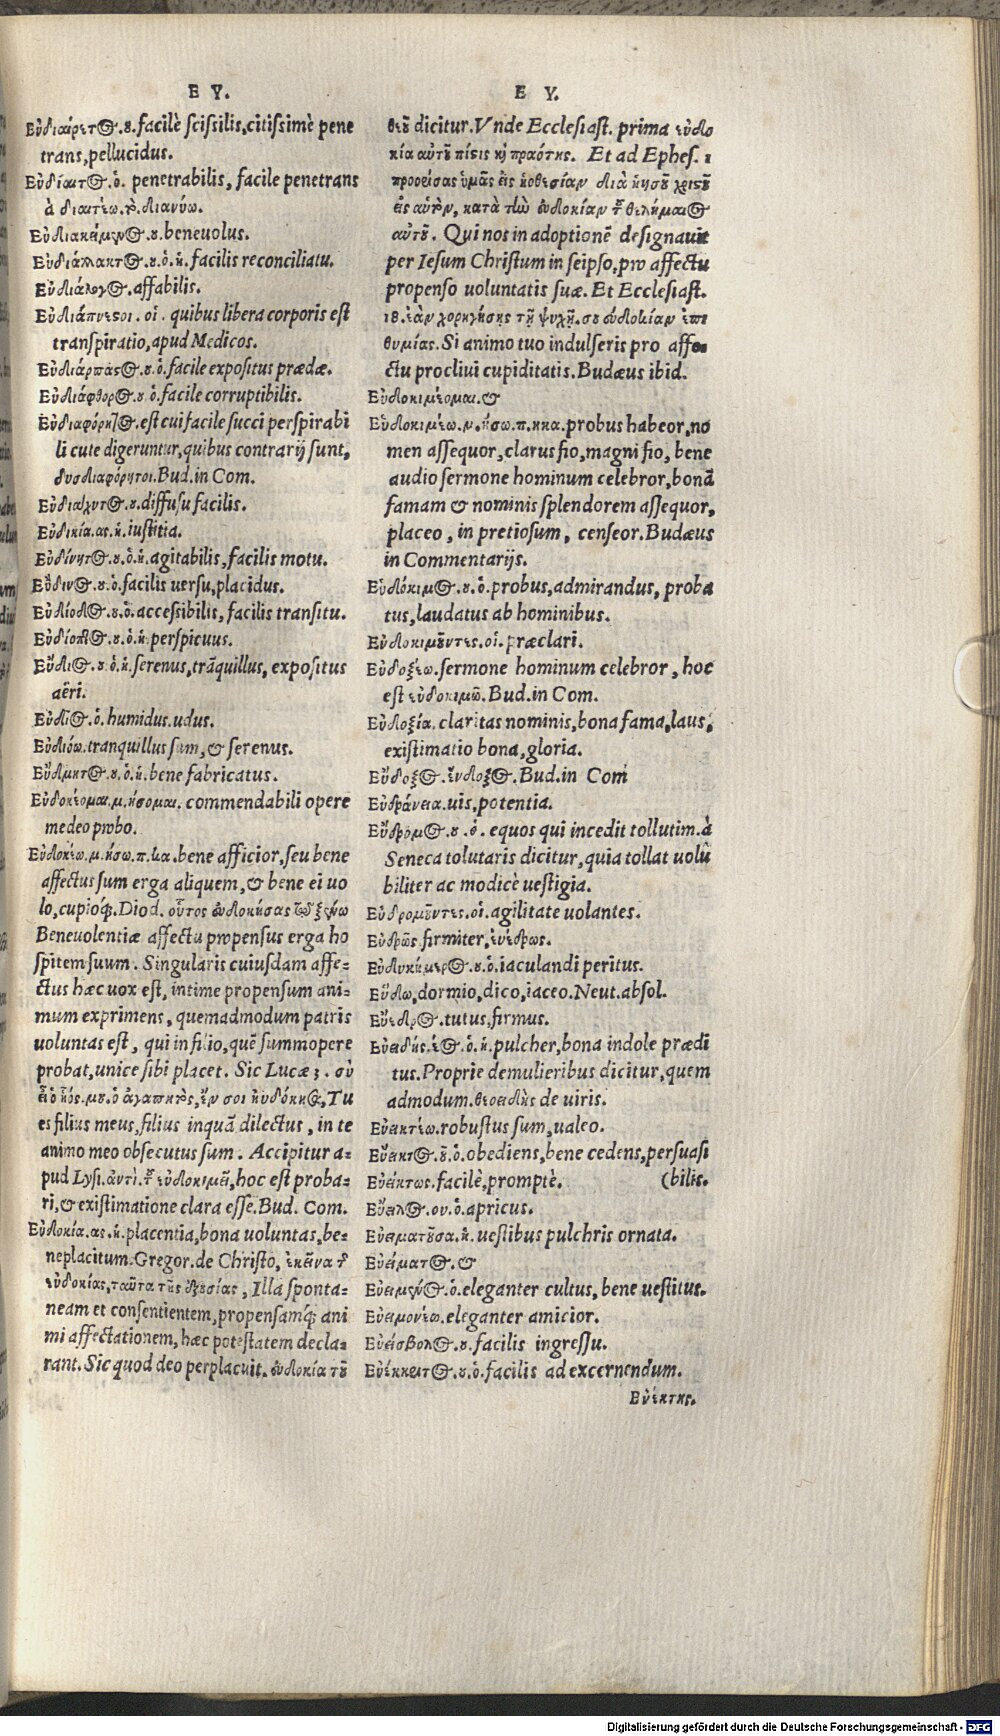 E Y.
Εὐδιαίρετος.ου.facilè scissilis,citissimè pene
trans,pellucidus.
Εὐδίαιτος.ὁ. penetrabilis, facile penetrans
à
Εὐδιακείμενος.ου.beneuolus.
Εὐδιάλλακτος.ου.ὁ.ἡ. facilis reconciliatu.
Εὐδιάλογος.affabilis.
Εὐδιάπνευστοι.οἱ. quibus libera corporis est
transpiratio,apud Medicos.
Εὐδιάρπαστος.ου.ὁ.facile expositus prædæ.
Εὐδιάφθορος.ου ὁ.facile corruptibilis.
Εὐδιαφόρητος.est cui facile succi perspirabi
li cute digeruntur,quibus contrarij sunt,
δυσδιαφόρητοι.Bud.in Com.
Εὐδιάχυτος.ου.diffusu facilis.
Εὐδικία.ας.ἡ.iustitia.
Εὐδίνητος.ου.ὁ.ἡ.agitabilis,facilis motu.
Εὔδινος.ου.ὁ.facilis uersu,placidus.
Εὐδίοδος.ου.ὁ.accessibilis, facilis transitu.
Εὐδίοπτος.ου.ὁ.ἡ.perspicuus.
Εὔδιος.ου.ὁ.ἡ.serenus,trãquillus, expositus
aëri.
Εὔδιος.ὁ.humidus.udus.
Εὐδιόω.tranquillus sum,& serenus.
Εὔδμητος.ου.ὁ.ἡ.bene fabricatus.
Εὐδοκέομαι.μ.ήσομαι. commendabili opere
me deo probo.
Εὐδοκέω.μ.ήσω.π.κα.bene afficior,seu bene
affectus sum erga aliquem,& bene ei uo
lo,cupioq́;.Diod. οὗτος εὐδοκήσας τῷ ξένῳ
Beneuolentiæ affectu propensus erga ho
spitem suum. Singularis cuiusdam affe-
ctus hæc uox est, intime propensum ani-
mum exprimens, quemadmodum patris
uoluntas est, qui in filio,quẽ summopere
probat,unice sibi placet. Sic Lucæ 3. σὺ
εἶ ὁ υἱός.μου.ὁ ἀγαπητὸς,ἔν σοι ηὐδόκησα,Tu
es filius meus,filius inquã dilectus, in te
animo meo obsecutus sum. Accipitur a-
pud Lysi.ἀντὶ.τοῦ εὐδοκιμεῖν,hoc est proba-
ri,& existimatione clara esse.Bud. Com.
Εὐδοκία.ας.ἡ.placentia,bona uoluntas,be-
neplacitum.Gregor.de Christo, ἐκεῖνα τῆς
εὐδοκίας,ταῦτα τῆς ἐξουσίας, Illa sponta-
neam et consentientem,propensamq́; ani
mi affectationem,hæc potestatem decla-
rant. Sic quod deo perplacuit. εὐδοκία τοῦ
E Y.
θεοῦ dicitur.Vnde Ecclesiast. prima εὐδο
κία αὐτοῦ πίστις καὶ πραότης. Et ad Ephes. 1
προορίσας ὑμᾶς εἰς υἱοθεσίαν διὰ ἰησοῦ χριστοῦ
εἰς αὐτὸν, κατὰ τὴν εὐδοκίαν τοῦ θελήματος
αὐτοῦ. Qui nos in adoptionẽ designauit
per Iesum Christum in seipso,pro affectu
propenso uoluntatis suæ. Et Ecclesiast.
18.ἐὰν χορηγήσῃς τῇ ψυχῇ.σου εὐδοκίαν ἐπι
θυμίας. Si animo tuo indulseris pro affe-
ctu procliui cupiditatis.Budæus ibid.
Εὐδοκιμέομαι.&
Εὐδοκιμέω.μ.ήσω.π.ηκα.probus habeor,no
men assequor,clarus fio,magni fio, bene
audio sermone hominum celebror, bonã
famam & nominis splendorem assequor,
placeo, in pretiosum, censeor.Budæus
in Commentarijs.
Εὐδόκιμος.ου.ὁ.probus,admirandus, proba
tus,laudatus ab hominibus.
Εὐδοκιμοῦντες.οἱ.præclari.
Εὐδοξέω.sermone hominum celebror, hoc
est εὐδοκιμῶ.Bud.in Com.
Εὐδοξία. claritas nominis,bona fama,laus,
existimatio bona,gloria.
Εὔδοξος.ἔνδοξος.Bud.in Com
Εὐδράνεια.uis,potentia.
Εὔδρομος.ου.ὁ. equos qui incedit tollutim.à
Seneca tolutaris dicitur,quia tollat uolu
biliter ac modicè uestigia.
Εὐδρομοῦντες.οἱ.agilitate uolantes.
Εὐδρῶς.firmiter,εὐέδρως.
ου.ὁ.iaculandi peritus.
Εὕδω,dormio,dico,iaceo.Neut.absol.
Εὔεδρος.tutus,firmus.
Εὐειδής.έος.ὁ.ἡ.pulcher,bona indole prædi
tus.Proprie de mulieribus dicitur,quem
admodum.θεοειδὴς de uiris.
Εὐεκτέω.robustus sum,ualeo.
Εὔεικτος.ου.ὁ.obediens,bene cedens,persuasi
Εὐείκτως.facilè,promptè. (bilis.
Εὔειλος.ου.ὁ.apricus.
Εὐειματοῦσα.ἡ.uestibus pulchris ornata.
Εὐείματος.&
Εὐείμων.ὁ.eleganter cultus, bene uestitus.
Εὐειμονέω.eleganter amicior.
Εὐείσβολος.ου.facilis ingressu.
Εὐέκκριτος.ου.ὁ.facilis ad excernendum.
Εὐέκτης.
Digitalisierung gefördert durch die Deutsche Forschungsgemeinschaft - DFG